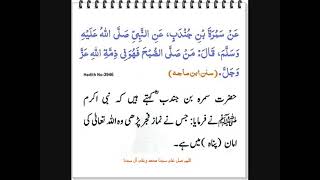 عَنْ سَمُرَةَ بْنِ جُنْدَبٍ، عَنِ النَّبِيِّ صَلَّى اللهُ عَلَيْهِ
وَسَلَّمَ، قَالَ: مَنْ صَلَّى الصُّبْحَ فَهُوَ فِي ذِمَّةِ اللهِ عَزَّ
وَجَلَّ. (سنن ابن ماجہ) Hadith No:3946
حضرت سمرہ بن جندب کہتے ہیں کہ نبی اکرم
ﷺ نے فرمایا: جس نے نماز فجر پڑھی وہ اللہ تعالی کی
امان (پناہ) میں ہے۔
اللهم صل على سيدنا محمد وعلى آل سيدنا